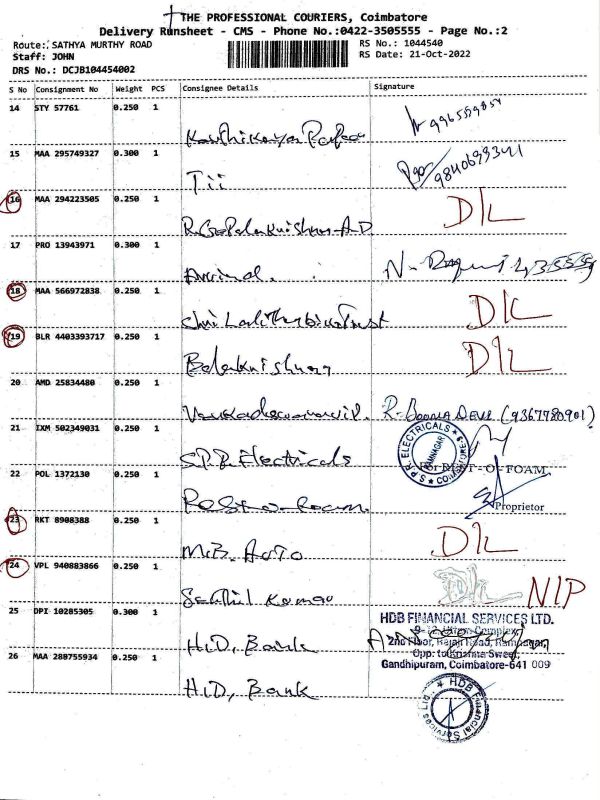 THE PROFESSIONAL COURIERS, Coimbatore
Delivery Runsheet - CMS - Phone No.:0422-3505555 - Page No.:2
Route: SATHYA MURTHY ROAD
Staff: JOHN
DRS No.: DCJB104454002
RS No.: 1044540
RS Date: 21-Oct-2022
S No Consignment No Weight PCS Consignee Details Signature
14 STY 57761 0.250 1
15 MAA 295749327 0.300 1
9840699341
Tii
16 MAA 294223505 0.250 1 D/L
17 PRO 13943971 0.300 1
Arvind.
18 MAA 566972838 0.250 1 D/L
19 BLR 4403393717 0.250 1 D/L
Balakrishnan
20 AMD 25834480 0.250 1
(9367780901)
21 IXM 502349031 0.250 1
S.P.R. ELECTRICALS
S.P.R. Electricals
22 POL 1372130 0.250 1
For REST-O-FOAM
Proprietor
Rest-o-foam
23 RKT 8908388 0.250 1 D/L
M.B. AUTO
24 VPL 940883866 0.250 1 D/L NIP
Senthil Kumar
25 DPI 10285305 0.300 1
HDB FINANCIAL SERVICES LTD.
2nd Floor, Rajaji Road, Ramnagar,
Opp: to Krishna Sweet,
Gandhipuram, Coimbatore-641 009
H.D, Bank
26 MAA 288755934 0.250 1
H.D, Bank
HDB Financial Services Ltd.